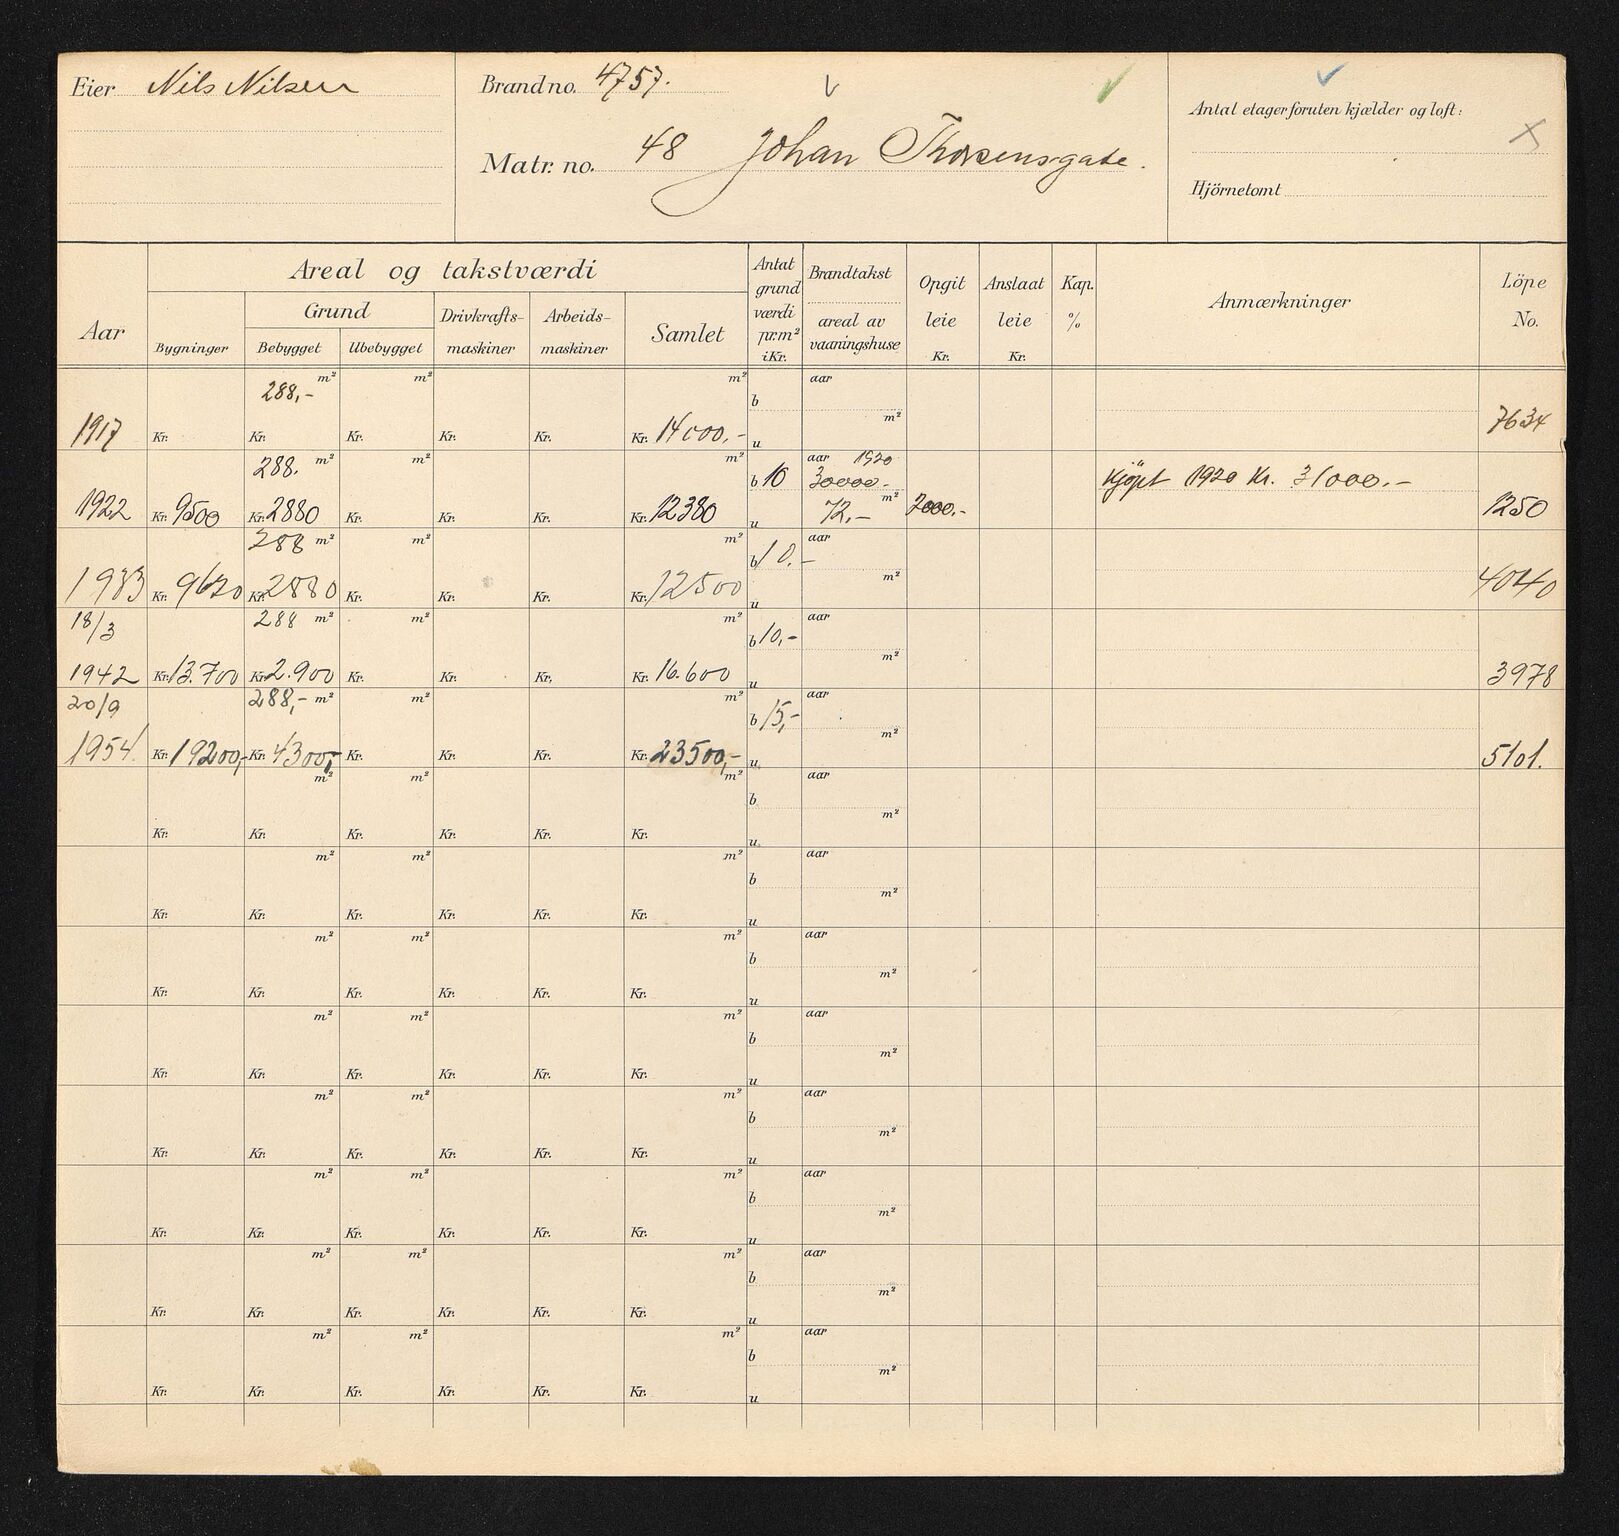 Eier Nils Nilsen
Brand no. 4757.
Matr. no. 48 Johan Thorsensgate.
Antal etager foruten kjælder og loft:
Hjörnetomt
Areal og takstværdi
Grund
Aar
Bygninger
Bebygget
Ubebygget
Drivkrafts-
maskiner
Arbeids-
maskiner
Samlet
Antat
grund
værdi
pr. m²
i Kr.
Brandtakst
areal av
vaaningshuse
Opgit
leie
Kr.
Anslaat
leie
Kr.
Kap.
%
Anmærkninger
Löpe
No.
288,- m² m² m² aar
b
m²
1917 Kr. Kr. Kr. Kr. Kr. Kr. 14000.- u 7634
288. m² m² m² aar 1920
b 10 30000.- Kjøpt 1920 Kr. 31000.-
m²
1922 Kr. 9500 Kr. 2880 Kr. Kr. Kr. Kr. 12380 u 72,- 2000.- 1250
288 m² m² m² aar
b 10.-
m²
1933 Kr. 9620 Kr. 2880 Kr. Kr. Kr. Kr. 12500 u 4040
18/3 288 m² m² m² aar
b 10,-
m²
1942 Kr. 13.700 Kr. 2.900 Kr. Kr. Kr. Kr. 16.600 u 3978
20/9 288,- m² m² m² aar
b 15,-
m²
1954 Kr. 19200,- Kr. 4300,- Kr. Kr. Kr. Kr. 23500,- u 5101.
m² m² m² aar
b
m²
Kr. Kr. Kr. Kr. Kr. Kr. u
m² m² m² aar
b
m²
Kr. Kr. Kr. Kr. Kr. Kr. u
m² m² m² aar
b
m²
Kr. Kr. Kr. Kr. Kr. Kr. u
m² m² m² aar
b
m²
Kr. Kr. Kr. Kr. Kr. Kr. u
m² m² m² aar
b
m²
Kr. Kr. Kr. Kr. Kr. Kr. u
m² m² m² aar
b
m²
Kr. Kr. Kr. Kr. Kr. Kr. u
m² m² m² aar
b
m²
Kr. Kr. Kr. Kr. Kr. Kr. u
m² m² m² aar
b
m²
Kr. Kr. Kr. Kr. Kr. Kr. u